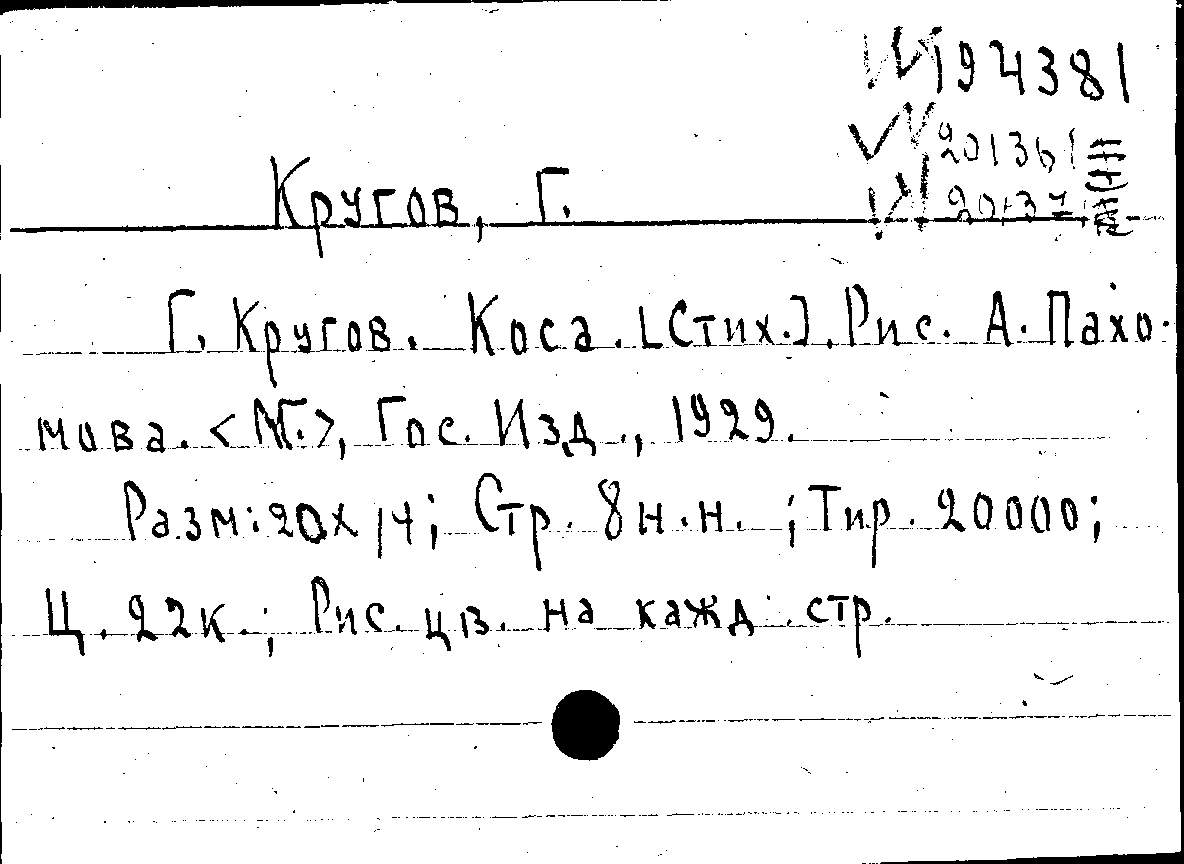 194381
201361
Кругов, Г.
Г. Кругов. Коса. [Стих.]. Рис. А. Пахо-
мова. <М.>, Гос. Изд., 1929.
Разм: 20х14; Стр. 8 н.н.; Тир. 20000;
Ц. 22к.; Рис. цв. на кажд. стр.